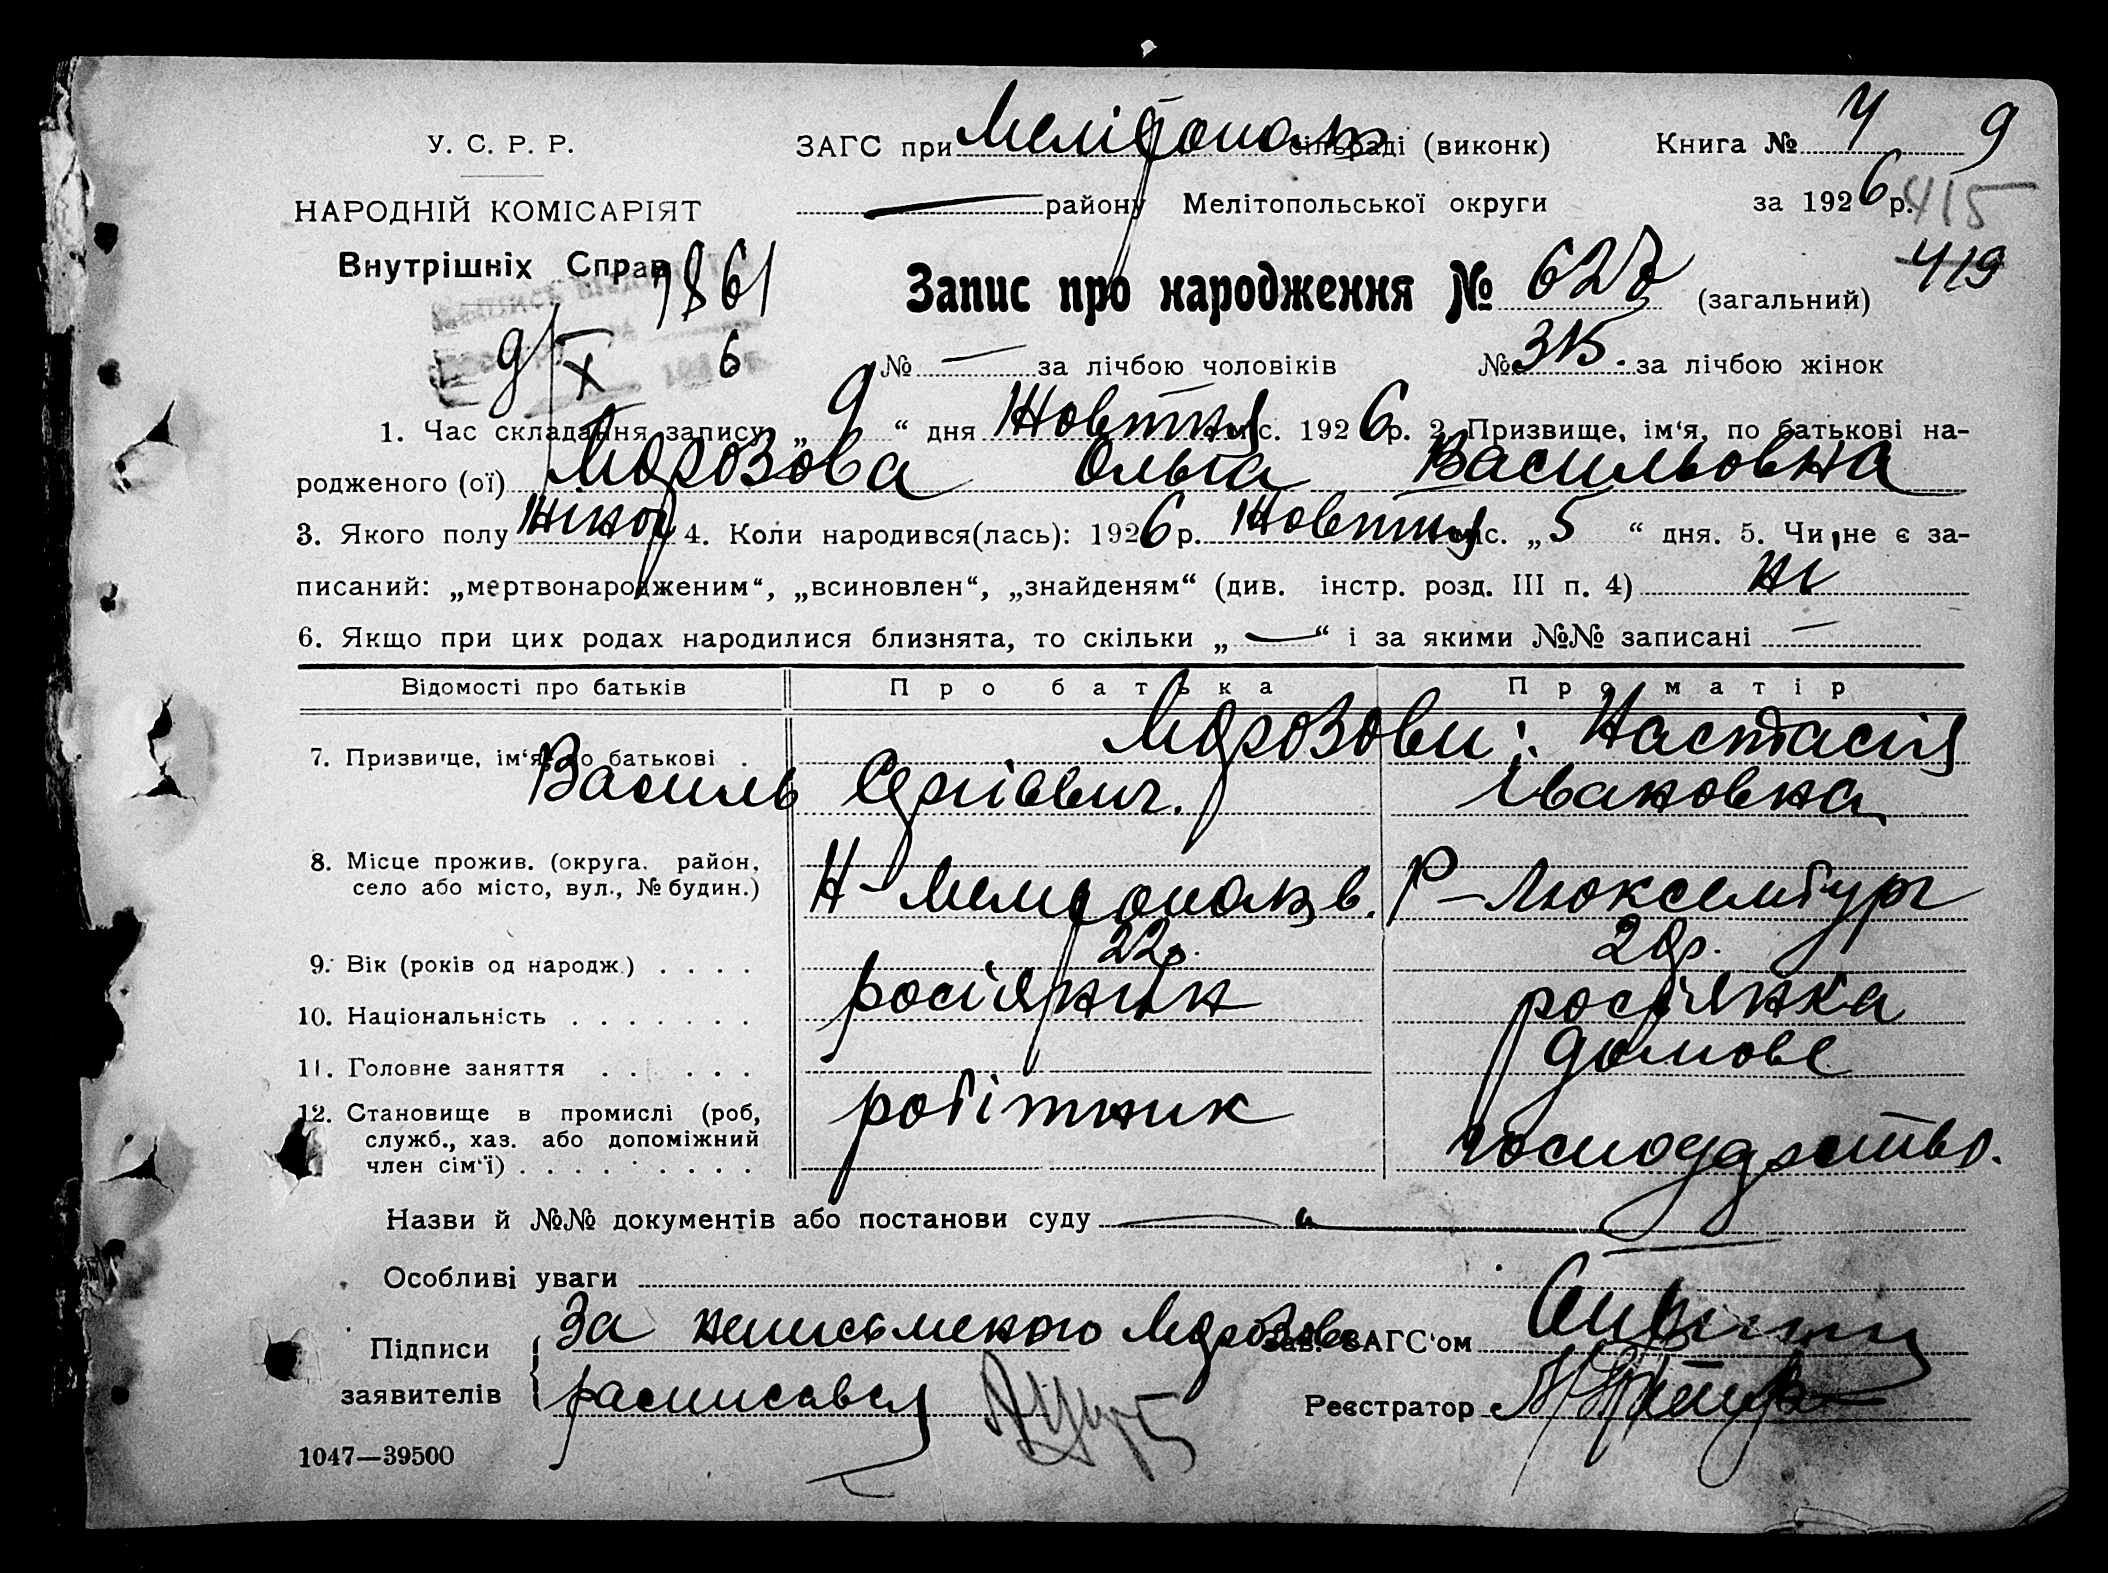 У. С. Р. Р.
ЗАГС при Мелітополь сільраді (виконк) Книга № 4 9
НАРОДНІЙ КОМІСАРІЯТ
— району Мелітопольської округи за 1926 р. 415
Внутрішніх Справ 7861
Запис про народження № 627 (загальний) 419
9/X 6
№ — за лічбою чоловіків № 315. за лічбою жінок
1. Час складання запису „ 9 “ дня Жовтня міс. 1926 р. 2. Призвище, ім‘я, по батькові на-
родженого (ої) Морозова Ольга Васильовна
3. Якого полу жіноч 4. Коли народився(лась): 1926 р. Жовтня міс. „ 5 “ дня. 5. Чи не є за-
писаний: „мертвонародженим“, „всиновлен“, „знайденям“ (див. інстр. розд. III п. 4) ні
6. Якщо при цих родах народилися близнята, то скільки „ — “ і за якими №№ записані —
Відомості про батьків Про батька Про матір
7. Призвище, ім‘я, по батькові . Морозови: Настасія
Василь Сергієвич. Івановна
8. Місце прожив. (округа, район,
село або місто, вул., № будин.) Н-Мелітополь в. Р-Люксембург
9. Вік (років од народж.) . . . . 22р. 20р.
10. Національність . . . . . . . росіянин росіянка
11. Головне заняття . . . . . . домове
12. Становище в промислі (роб, робітник
служб., хаз. або допоміжний господарство.
член сім‘ї) . . . . . . . . .
Назви й №№ документів або постанови суду — " —
Особливі уваги —
Підписи За неписьменого Морозова Зав. ЗАГС‘ом
заявителів расписався Реєстратор
1047—39500